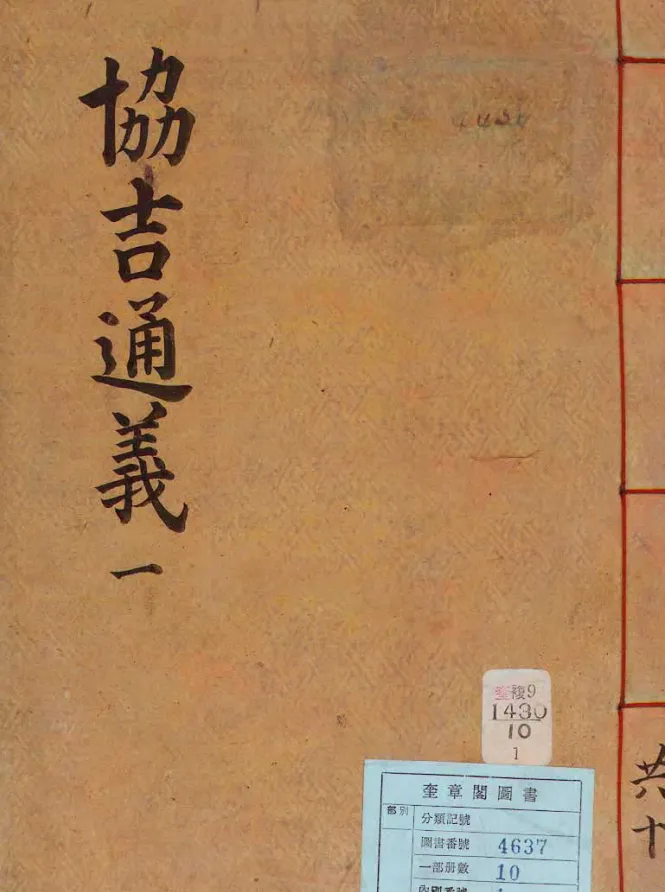 協吉通義 一
共十
複9
1430
10
1
奎章閣圖書
部別
分類記號
圖書番號 4637
一部册數 10